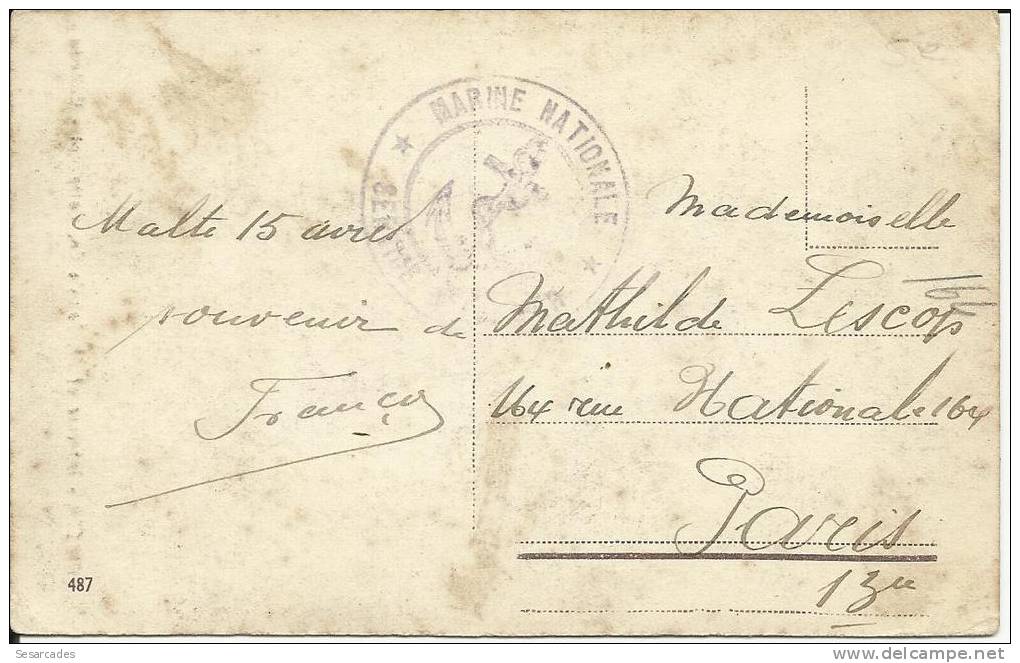 MARINE NATIONALE
Malte 15 avril
souvenir de
François
Mademoiselle
Mathilde Lescop
164 rue Nationale 164
Paris
13me
487
Sesarcades
www.delcampe.net